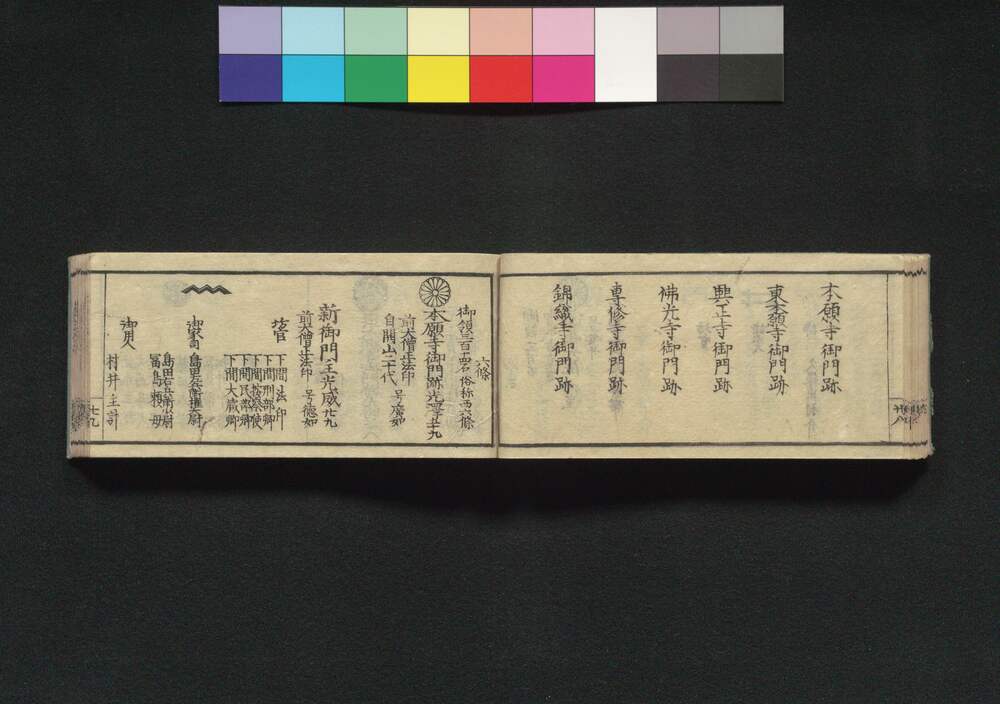 本願寺御門跡
東本願寺御門跡
興正寺御門跡
佛光寺御門跡
專修寺御門跡
錦織寺御門跡
六條
御領三百 俗称西六條
本願寺御門跡光澤 五十九
前大僧正法印
自開山二十代 号廣如
新御門主光威 廿九
前大僧正法印 号德如
下間少法印
下間刑部卿
下間按察使
下間民部卿
下間大蔵卿
御家司
島田
冨島頼母
村井主計
七九